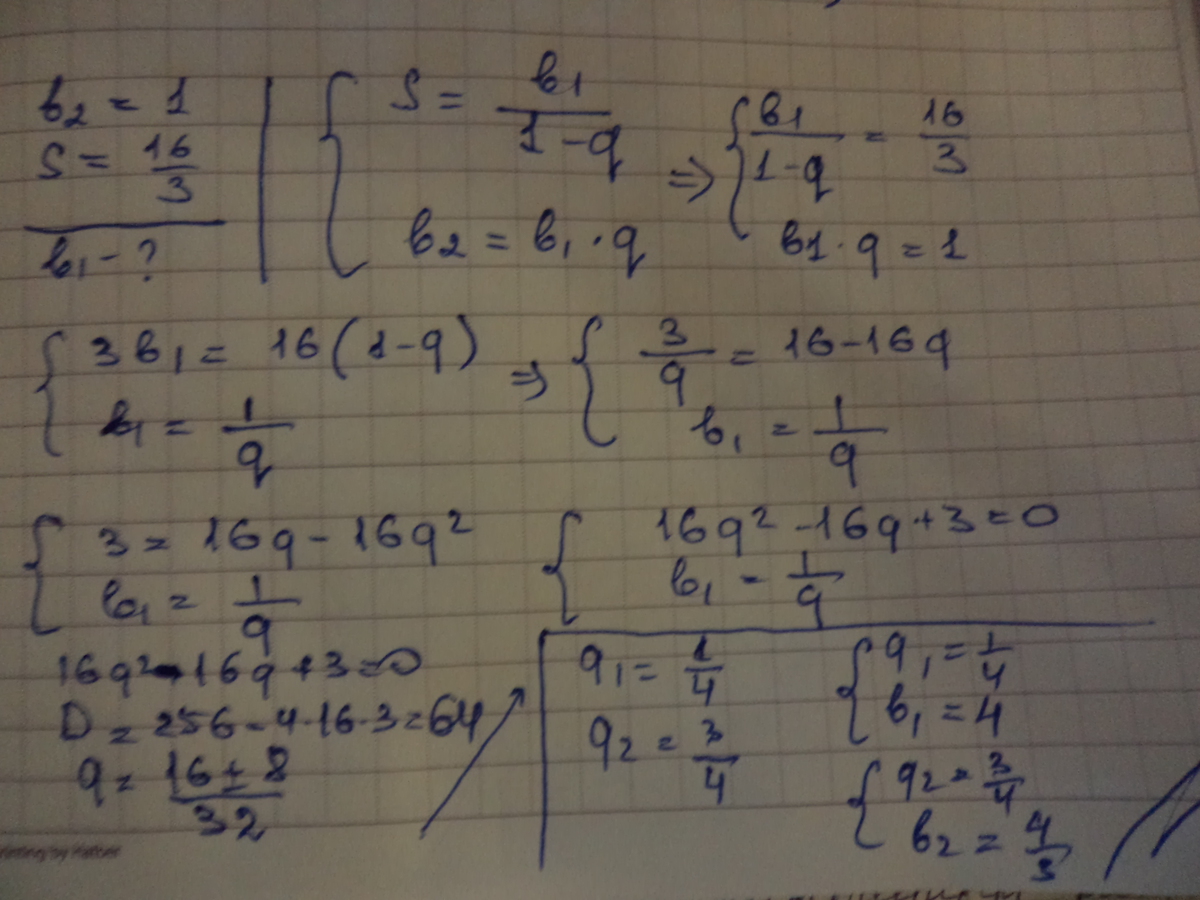 b₂ = 1
S = 16/3
b₁ - ?
{ S = b₁/(1-q)
b₂ = b₁ · q
⇒ { b₁/(1-q) = 16/3
b1 · q = 1
{ 3b₁ = 16(1-q)
b₁ = 1/q
⇒ { 3/q = 16-16q
b₁ = 1/q
{ 3 = 16q - 16q²
b₁ = 1/q
{ 16q² - 16q + 3 = 0
b₁ = 1/q
16q² - 16q + 3 = 0
D = 256 - 4·16·3 = 64
q = (16 ± 8)/32
q₁ = 1/4
q₂ = 3/4
{ q₁ = 1/4
b₁ = 4
{ q₂ = 3/4
b₂ = 4/3